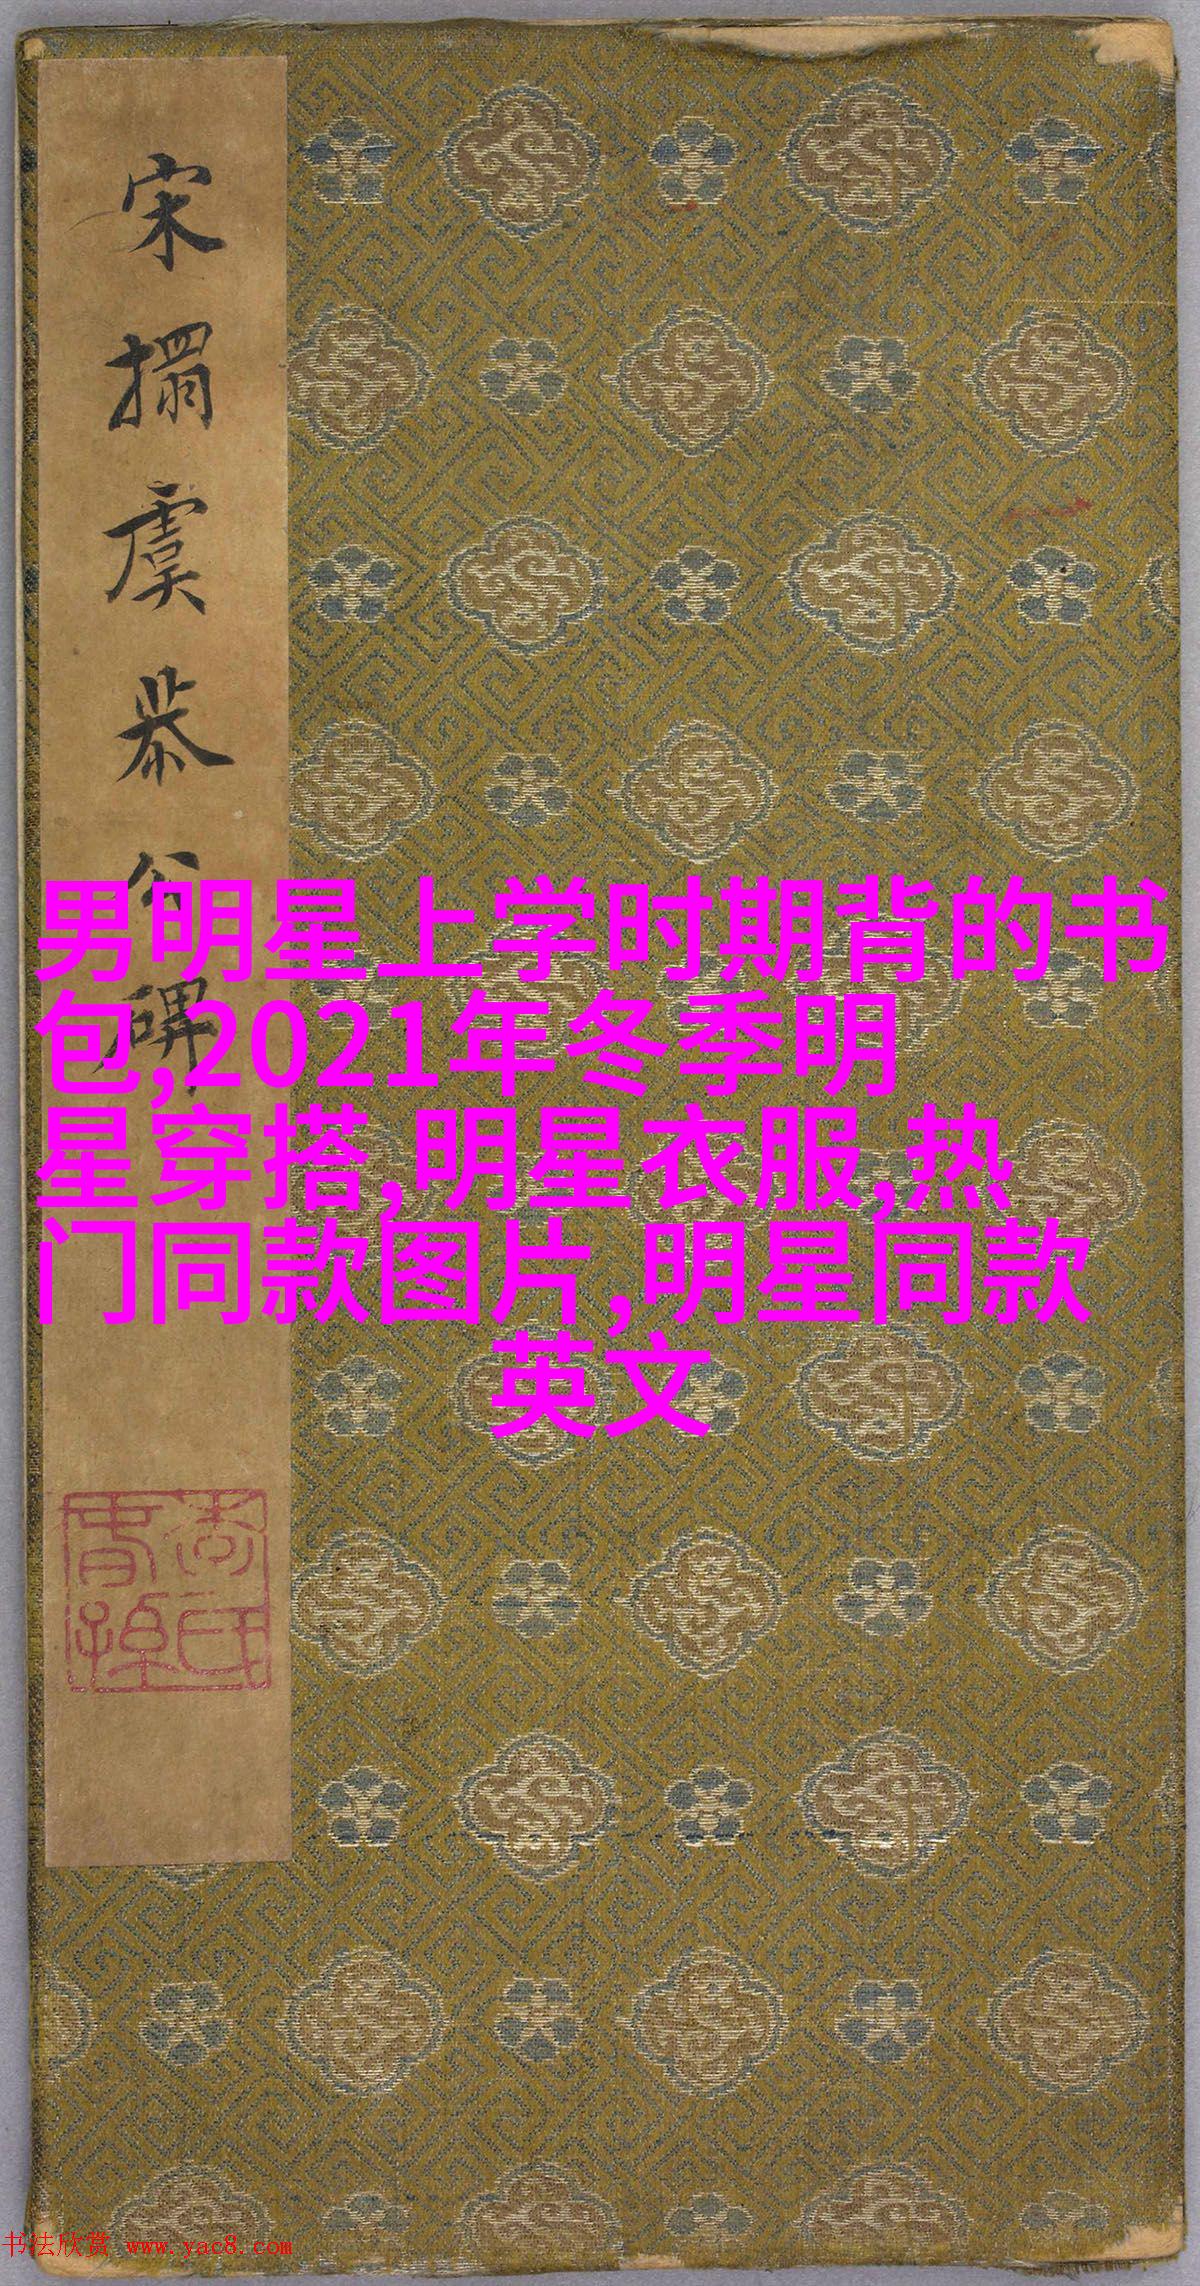 宋搨虞恭公碑
男明星上学时期背的书
包,2021年冬季明
星穿搭,明星衣服,热
门同款图片,明星同款
英文
书法欣赏 www.yac8.com